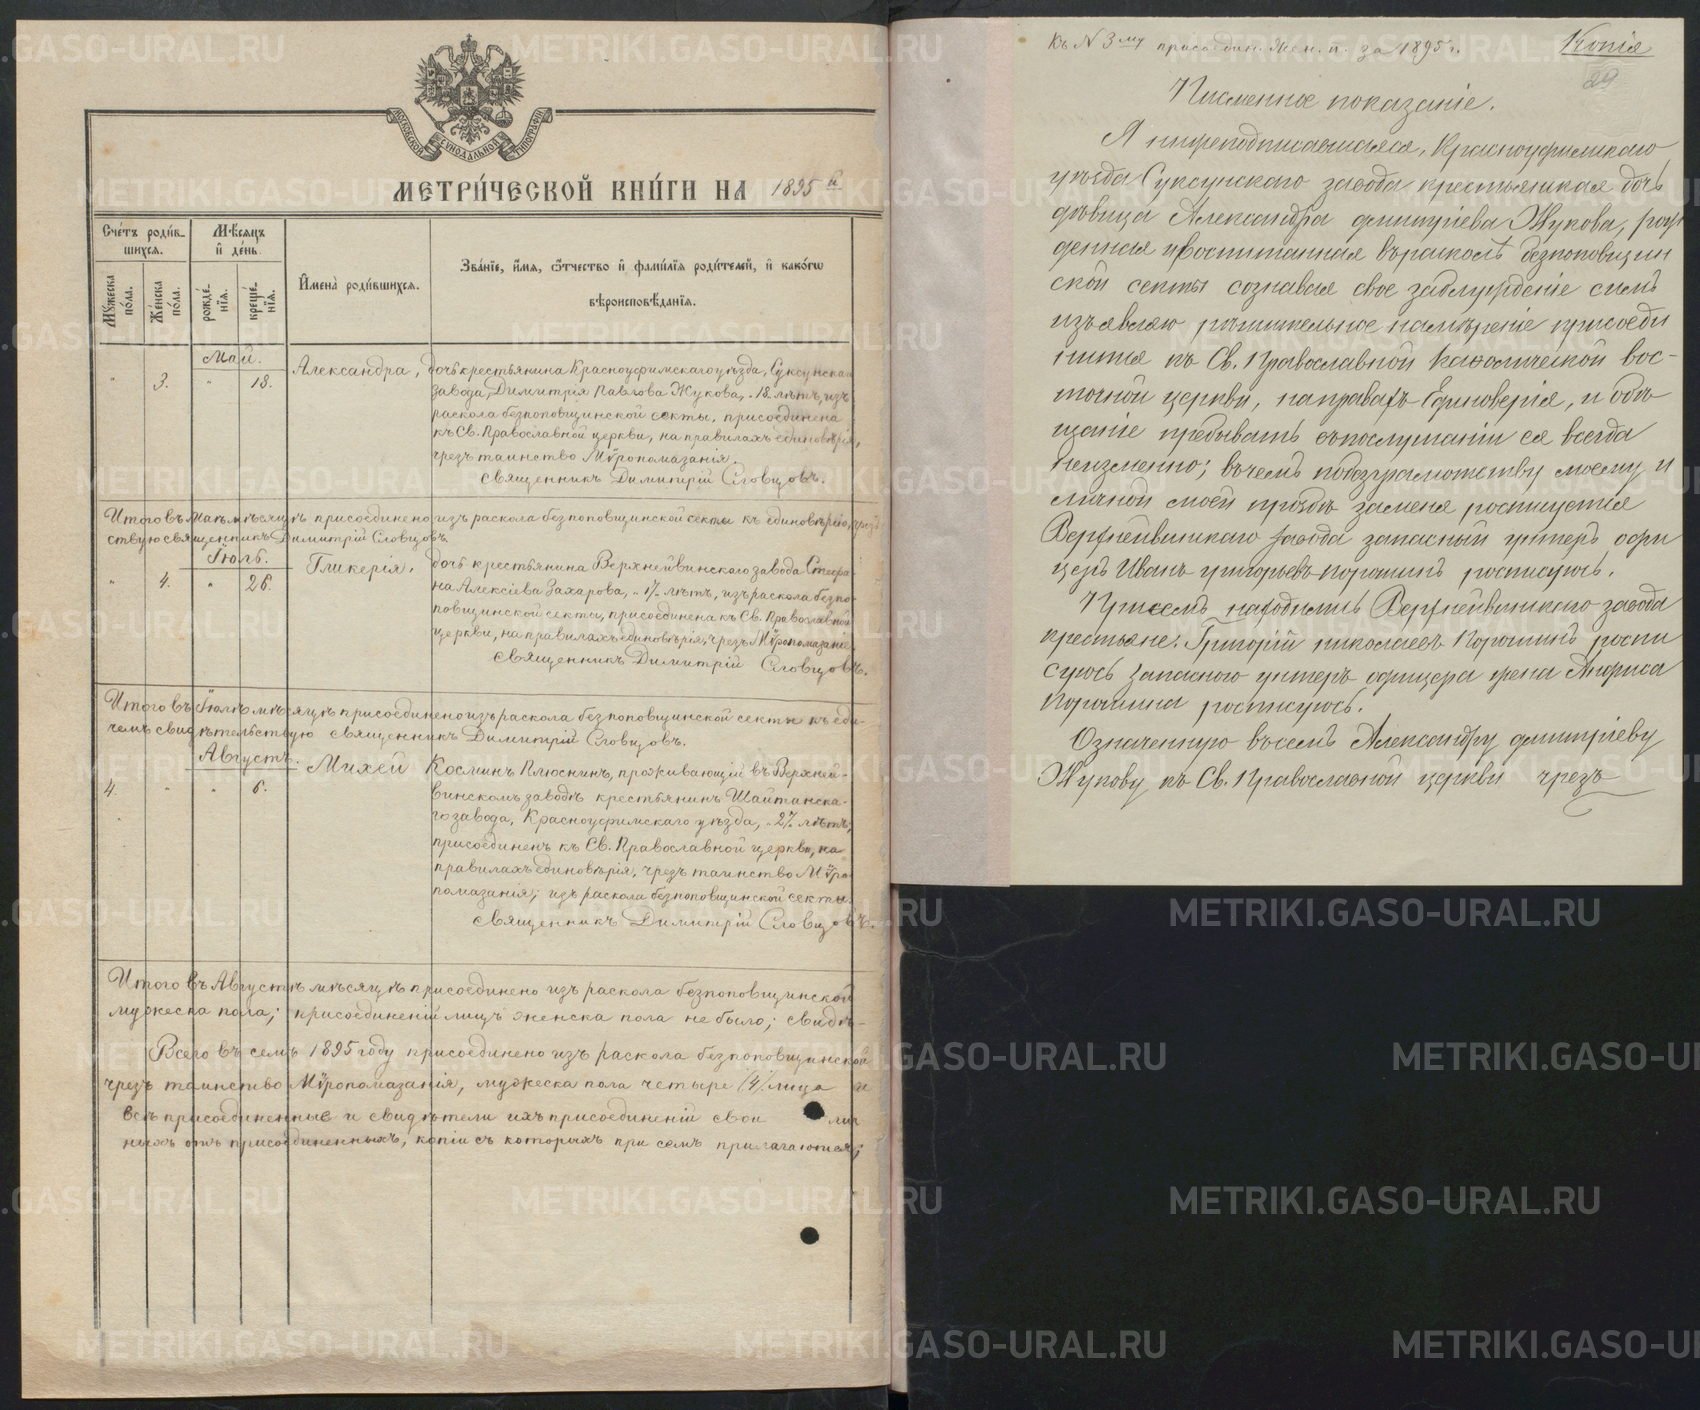 МОСКОВСКОЙ СУНОДАЛЬНОЙ ТИПОГРАФІИ
МЕТРИЧЕСКОЙ КНИГИ НА 1895 й.
Счетъ родив-
шихся.
Мѣсяцъ
и день.
Имена родившихся.
Званіе, имя, отчество и фамилія родителей, и какогѡ
вѣроисповѣданія.
Мужеска пола.
Женска пола.
рожде-
нія.
креще-
нія.
Май.
3. " 18.
Александра, дочь крестьянина Красноуфимскаго уѣзда, Суксунскаго
завода, Димитрія Павлова Жукова, 18 лѣтъ, изъ
раскола безпоповщинской секты, присоединена
къ Св. Православной церкви, на правилахъ единовѣрія,
чрезъ таинство Мѵропомазанія.
священникъ Димитрій Словцовъ.
Итого въ Маѣ мѣсяцѣ присоединено изъ раскола безпоповщинской секты къ единовѣрію,
ствую священникъ Димитрій Словцовъ
Іюль.
" 4. " 26.
Гликерія, дочь крестьянина Верхнейвинскаго завода Стефа-
на Алексіева Захарова, 17 лѣтъ, изъ раскола безпо-
повщинской секты, присоединена къ Св. Православной
церкви, на правилахъ единовѣрія, чрезъ Мѵропомазаніе.
священникъ Димитрій Словцовъ.
Итого въ Іюлѣ мѣсяцѣ присоединено изъ раскола безпоповщинской секты къ еди-
чемъ свидѣтельствую священникъ Димитрій Словцовъ.
Августъ.
4. " " 6.
Михей Космин Плюснинъ, проживающій въ Верхней-
винскомъ заводѣ крестьянинъ Шайтанска-
го завода, Красноуфимскаго уѣзда, 27 лѣтъ,
присоединенъ къ Св. Православной церкви, на
правилахъ единовѣрія, чрезъ таинство Мѵро-
помазанія; изъ раскола безпоповщинской секты
священникъ Димитрій Словцовъ.
Итого въ Августѣ мѣсяцѣ присоединено изъ раскола безпоповщинской
мужеска пола; присоединеній лицъ женска пола не было; свидѣ-
Всего въ семъ 1895 году присоединено изъ раскола безпоповщинской
чрезъ таинство Мѵропомазанія, мужеска пола четыре (4) лица и
всѣ присоединенные и свидѣтели ихъ присоединеній свои
ныхъ отъ присоединенныхъ, копіи съ которыхъ при семъ прилагаются;
Къ N 3му присоедин. жен. п. за 1895 г.
Копія
29
Писменное показаніе.
Я нижеподписавшаяся, Красноуфимскаго
уѣзда Суксунскаго завода крестьянская дочь
дѣвица Александра Димитріева Жукова, рож
денная и воспитанная въ расколѣ безпоповщин
ской секты сознавая свое заблужденіе симъ
изъявляю рѣшительное намѣреніе присоеди
нится къ Св. Православной Каѳолической вос-
точной церкви, на правахъ Единоверія, и обѣ
щаніе пребывать въ послушаніи ея всегда
неизменно; въ чемъ по безграмотству моему и
личной моей прозбѣ за меня росписуется
Верхнейвинскаго завода запасный унтеръ офи
церъ Иванъ Григорьевъ Порошинъ росписуюсь.
При семъ находились Верхнейвинского завода
крестьяне: Григорій Николаевъ Порошинъ роспи
суюсь запасного унтеръ офицера жена Анфиса
Порошина росписуюсь.
Означенную въ семъ Александру Димитріеву
Жукову къ Св. Православной церкви чрезъ
METRIKI.GASO-URAL.RU